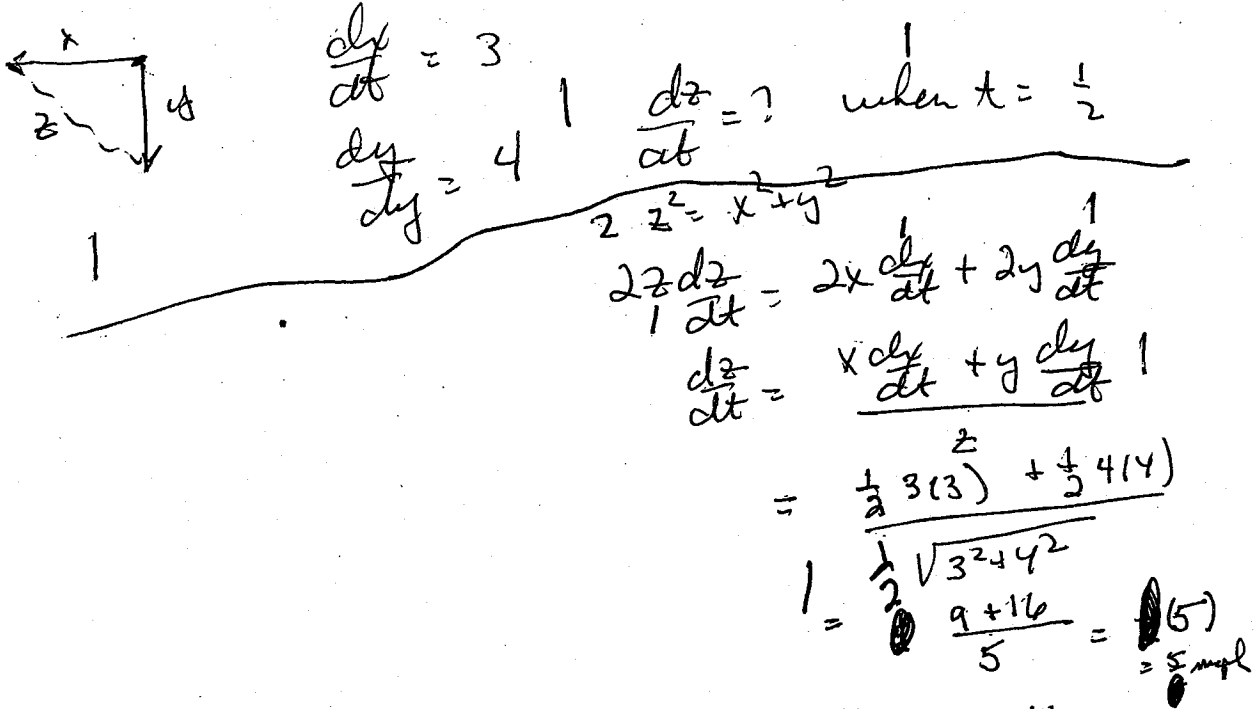 x
dx/dt = 3
1
y
z
1 dz/dt = ? when t = 1/2
dy/dy = 4
1
2 z² = x² + y²
1 1
2z dz/dt = 2x dx/dt + 2y dy/dt
1
dz/dt = (x dx/dt + y dy/dt)/z 1
= (1/2 3(3) + 1/2 4(4))/(1/2 √(3²+4²))
1 = (9+16)/5 = (5)
= 5 mph